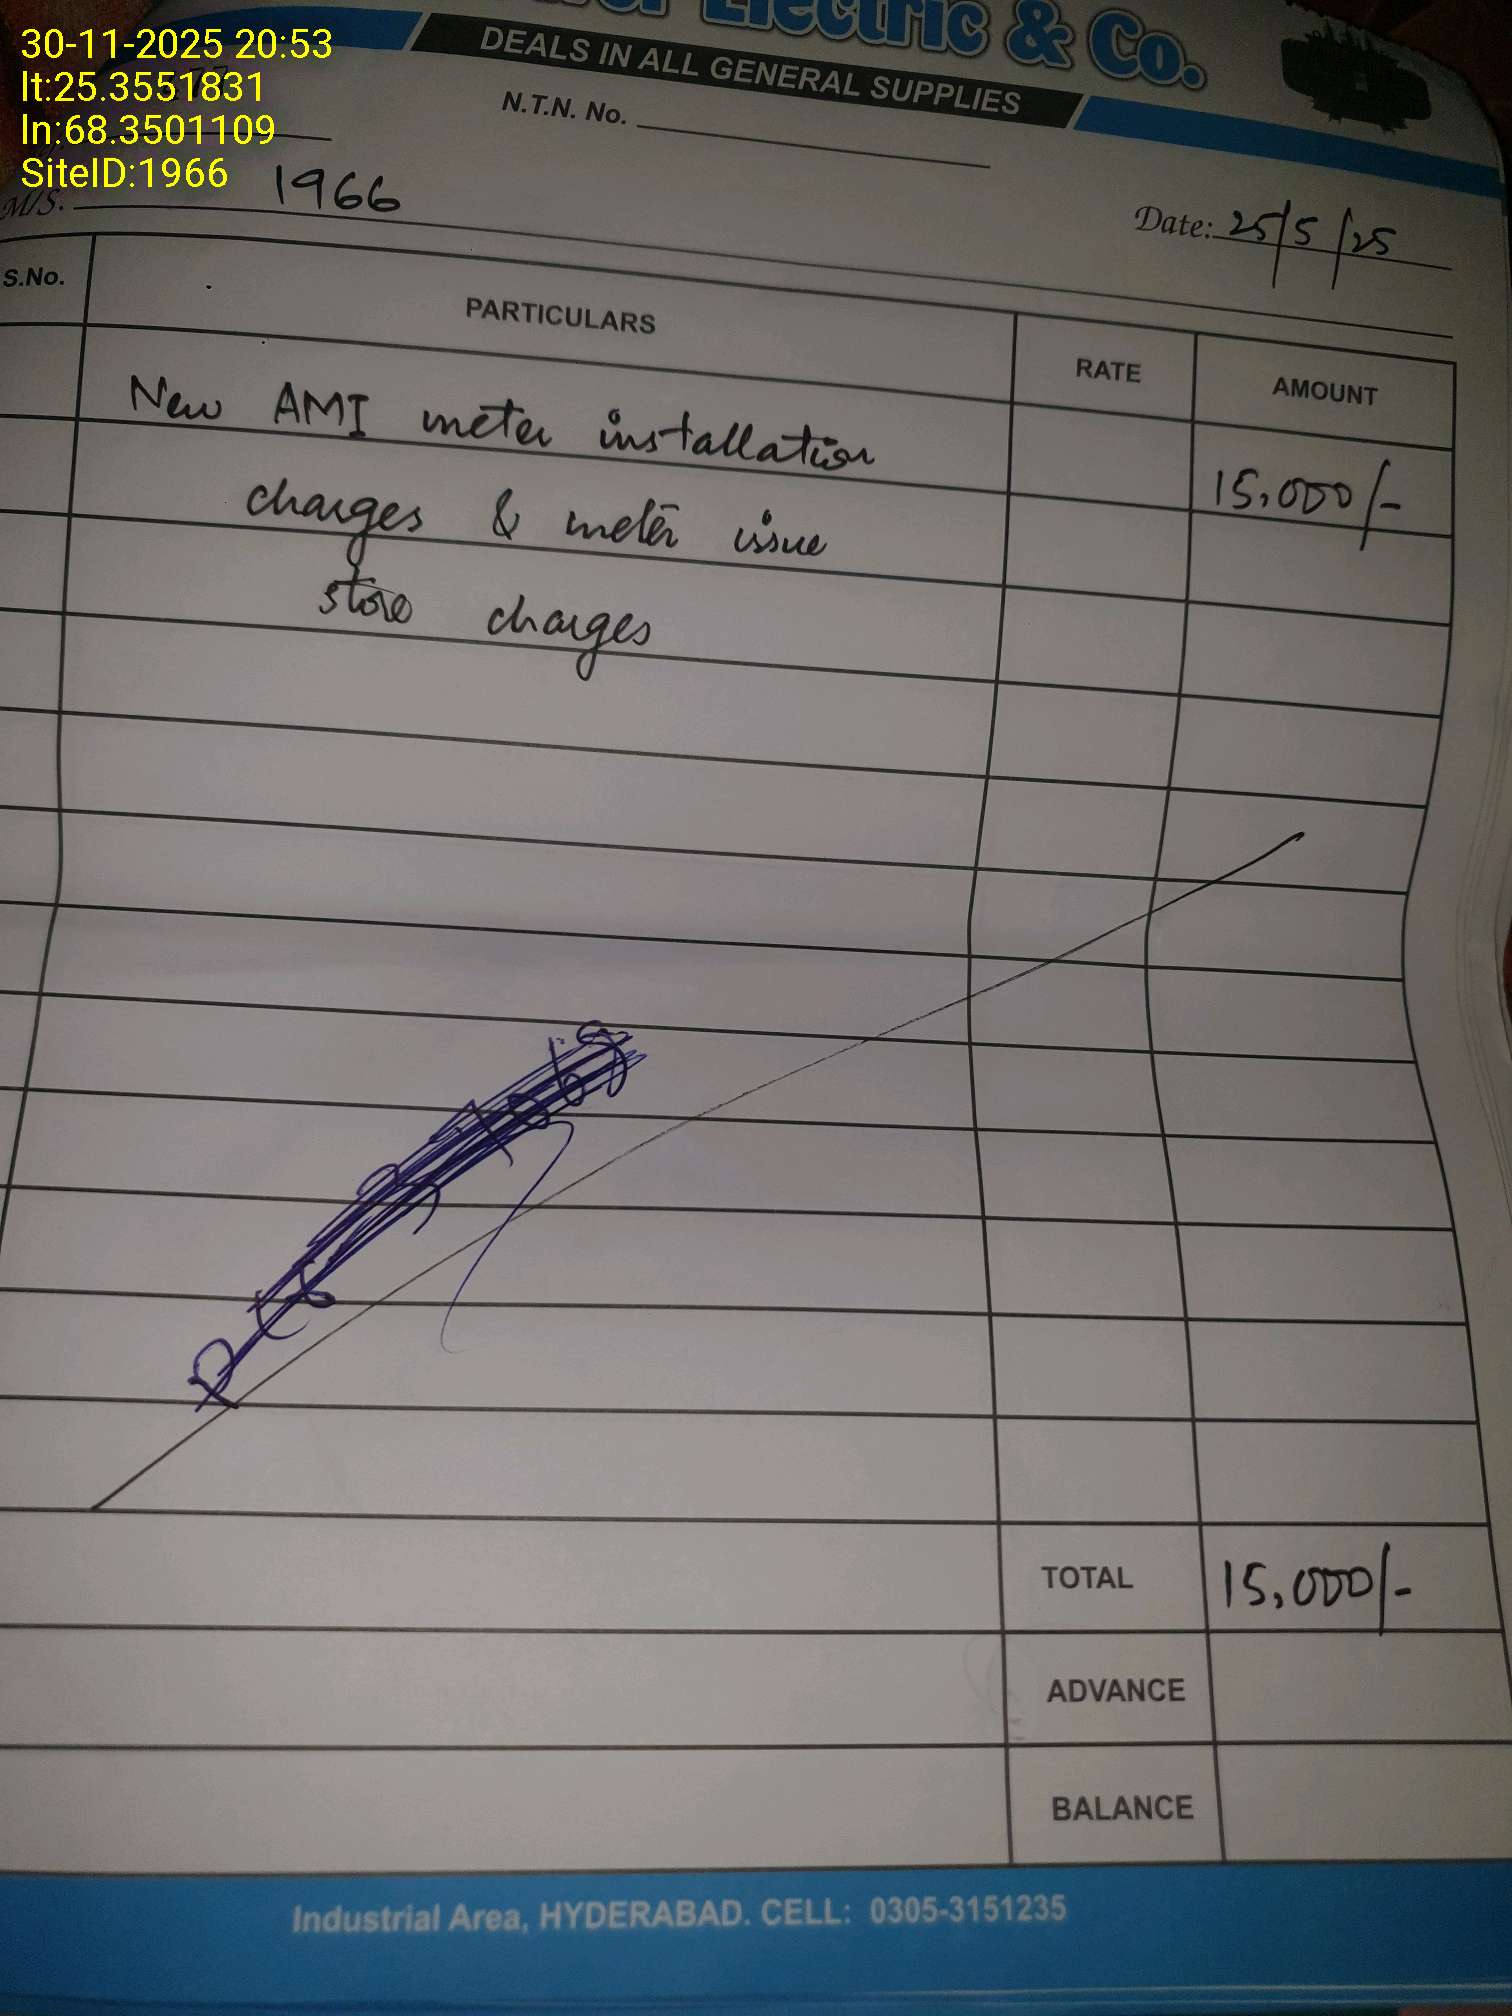 30-11-2025 20:53
lt:25.3551831
ln:68.3501109
SiteID:1966
Electric & Co.
DEALS IN ALL GENERAL SUPPLIES
N.T.N. No.
M/S. 1966
Date: 25/5/25
S.No. PARTICULARS RATE AMOUNT
New AMI meter installation
charges & meter issue 15,000/-
store charges
TOTAL 15,000/-
ADVANCE
BALANCE
Industrial Area, HYDERABAD. CELL: 0305-3151235